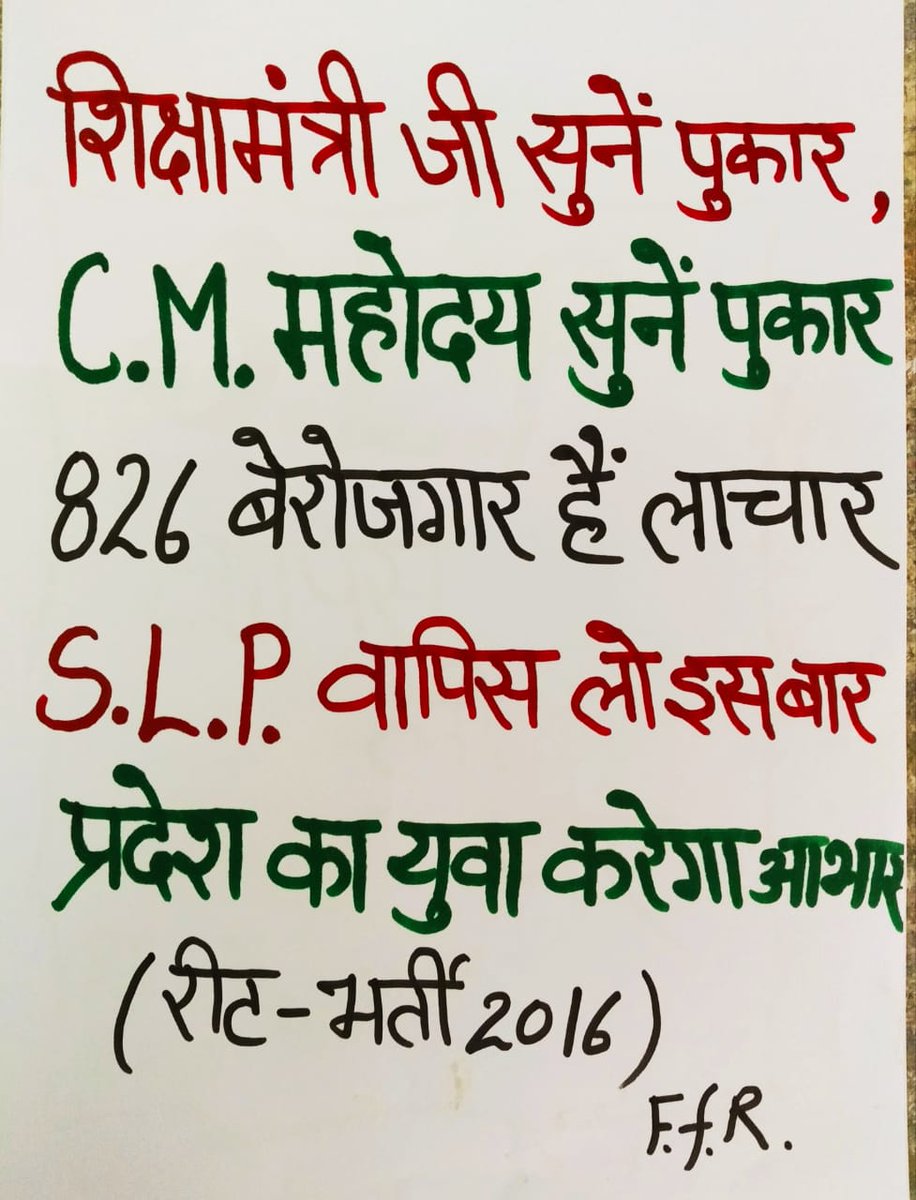 शिक्षामंत्री जी सुनें पुकार,
C.M. महोदय सुनें पुकार
826 बेरोजगार हैं लाचार
S.L.P. वापिस लो इस बार
प्रदेश का युवा करेगा आभार
(रीट-भर्ती 2016)
F.f.R.